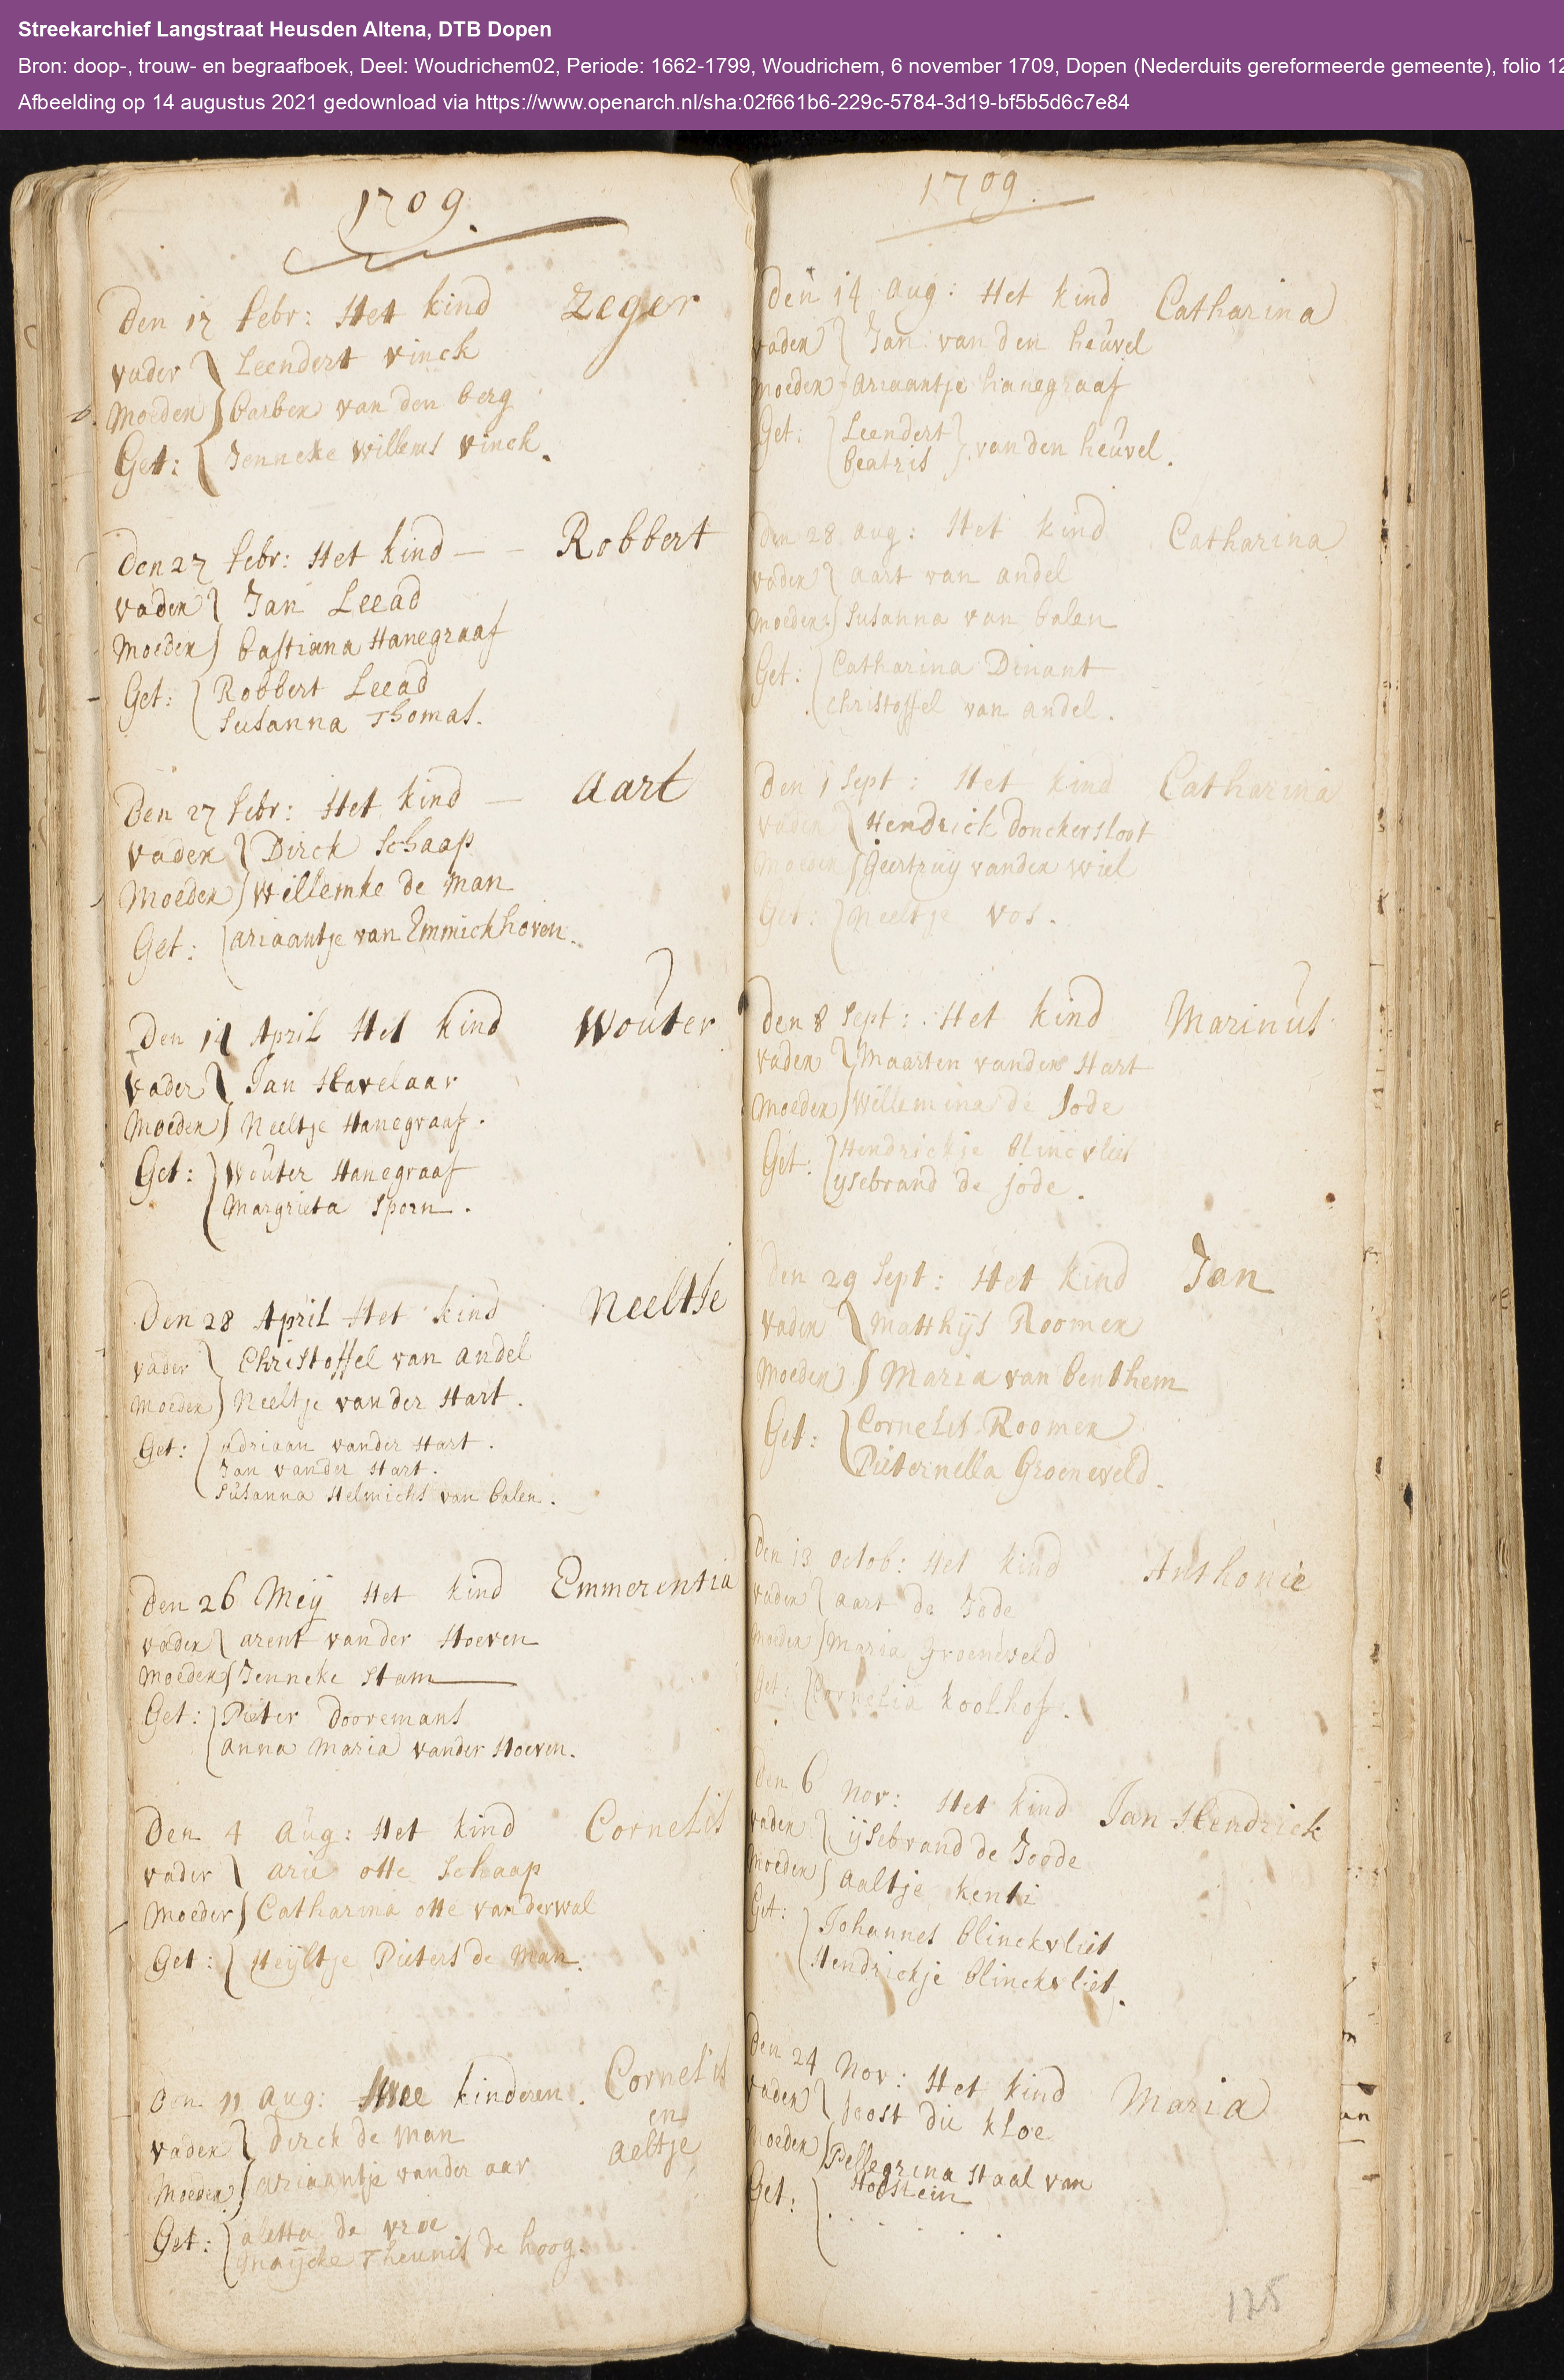 Streekarchief Langstraat Heusden Altena, DTB Dopen
Bron: doop-, trouw- en begraafboek, Deel: Woudrichem02, Periode: 1662-1799, Woudrichem, 6 november 1709, Dopen (Nederduits gereformeerde gemeente), folio 12
Afbeelding op 14 augustus 2021 gedownload via https://www.openarch.nl/sha:02f661b6-229c-5784-3d19-bf5b5d6c7e84
1709.
Den 17 febr: Het kind Zeger
vader Leendert vinck
Moeder barber van den berg
Get: Jenneke willems vinck.
Den 27 febr: Het kind — – Robbert
vader Jan Leead
Moeder bastiana Hanegraaf
Get: Robbert Leead
Susanna Thomas.
Den 27 febr: Het kind — Aart
vader Dirck Schaap
Moeder Willemke de Man
Get: ariaantje van Emmickhoven.
Den 14 April Het kind Wouter
vader Jan Havelaar
Moeder Neeltje Hanegraaf.
Get: Wouter Hanegraaf
Margrieta Sporn.
Den 28 April Het kind Neeltje
vader Christoffel van andel
Moeder Neeltje van der Hart.
Get: adriaan vander Hart.
Jan vander Hart.
Susanna Helmichs van balen.
Den 26 Meij Het kind Emmerentia
vader arent vander Hoeven
Moeder Jenneke Stam
Get: Pieter Dooremans
anna Maria vander Hoeven.
Den 4 Aug: Het kind Cornelis
vader arie otte Schaap
Moeder Catharina otte vanderwal
Get: Heijltje Pieters de Man.
Den 11 aug: twee kinderen. Cornelis
en
vader Dirck de Man Aeltje
Moeder ariaantje vander aar
Get: aletta de vroe
Maijcke Theunis de hoog.
1709.
Den 14 Aug: Het kind Catharina
vader Jan van den heuvel
Moeder ariaantje hanegraaf
Get: Leendert
beatris van den heuvel.
Den 28 aug: Het kind Catharina
vader aart van andel
Moeder Susanna van balen
Get: Catharina Dinant
Christoffel van andel.
Den 1 Sept: Het kind Catharina
vader Hendrick donckersloot
Moeder Geertruy vander wiel
Get: Neeltje vos.
Den 8 Sept: Het kind Marinus
vader Maarten vander Hart
Moeder Willemina de Jode
Get: Hendrickje blincvliet
ysebrand de jode.
Den 29 Sept: Het kind Jan
vader Matthijs Roomer
Moeder Maria van benthem
Get: Cornelis Roomer
Pieternella Groeneveld.
Den 13 octob: Het kind Anthonie
vader aart de Jode
Moeder Maria Groeneveld
Get: Cornelia koolhof.
Den 6 Nov: Het kind Jan Hendrick
vader ijsebrand de Joode
Moeder Aaltje kenti
Get: Johannes blinckvliet
Hendrickje blinckvliet.
Den 24 Nov: Het kind Maria
vader Joost die kloe
Moeder Pellegrina Staal van
Holstein
Get: . . . . . .
125